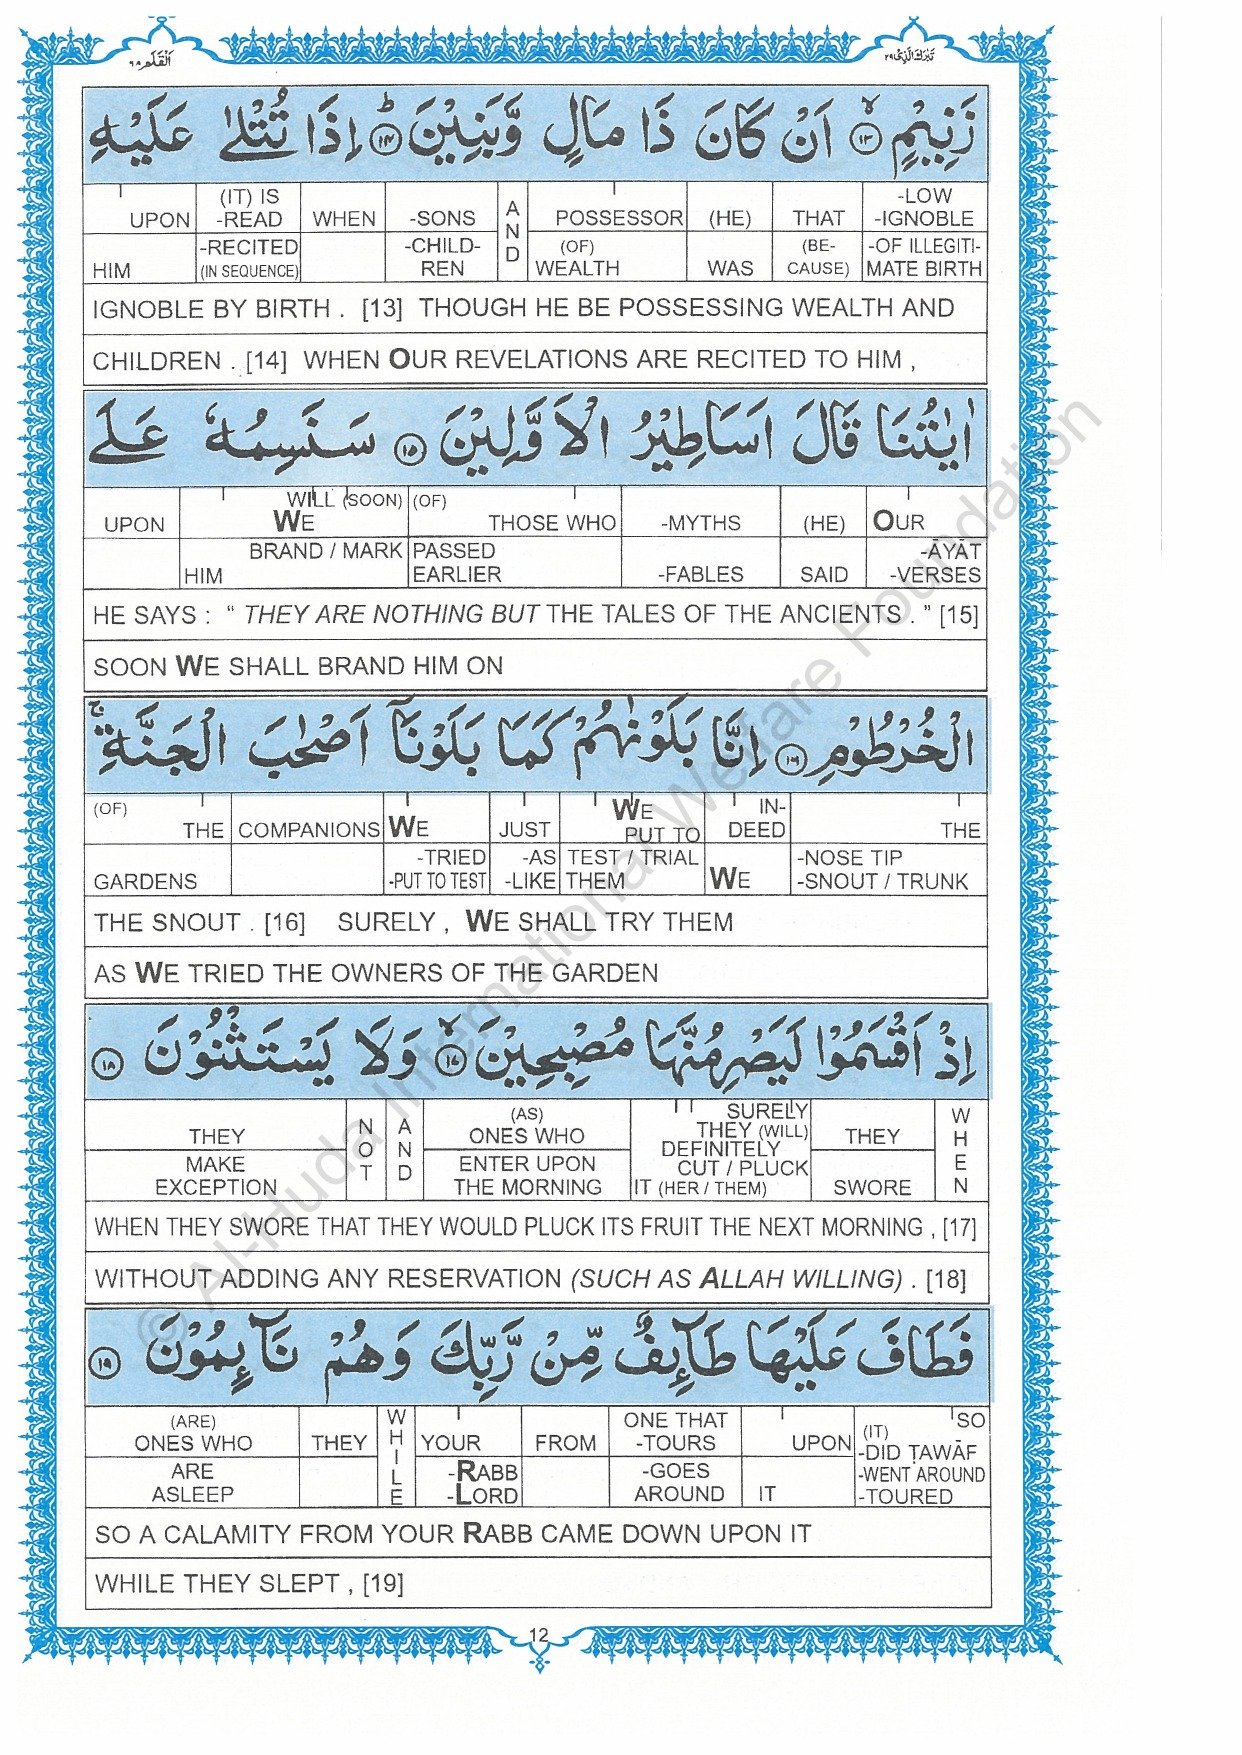 اَلْقَلَم ٦٨
تَبٰرَكَ الَّذِیْ ٢٩
زَنِيْمٍ ۙ ١٣ اَنْ كَانَ ذَا مَالٍ وَّبَنِيْنَ ؕ ١٤ اِذَا تُتْلٰى عَلَيْهِ
UPON (IT) IS -READ WHEN -SONS AND POSSESSOR (HE) THAT -LOW -IGNOBLE
HIM -RECITED (IN SEQUENCE) -CHILD- REN (OF) WEALTH WAS (BE- CAUSE) -OF ILLEGITI- MATE BIRTH
IGNOBLE BY BIRTH . [13] THOUGH HE BE POSSESSING WEALTH AND
CHILDREN . [14] WHEN OUR REVELATIONS ARE RECITED TO HIM ,
اٰيٰتُنَا قَالَ اَسَاطِيْرُ الْاَوَّلِيْنَ ١٥ سَنَسِمُهٗ عَلَى
UPON WILL (SOON) WE (OF) THOSE WHO -MYTHS (HE) OUR
BRAND / MARK HIM PASSED EARLIER -FABLES SAID -ĀYĀT -VERSES
HE SAYS : “ THEY ARE NOTHING BUT THE TALES OF THE ANCIENTS . ” [15]
SOON WE SHALL BRAND HIM ON
الْخُرْطُوْمِ ١٦ اِنَّا بَلَوْنٰهُمْ كَمَا بَلَوْنَاۤ اَصْحٰبَ الْجَنَّةِ ۚ
(OF) THE COMPANIONS WE JUST WE PUT TO IN- DEED THE
GARDENS -TRIED -PUT TO TEST -AS -LIKE TEST / TRIAL THEM WE -NOSE TIP -SNOUT / TRUNK
THE SNOUT . [16] SURELY , WE SHALL TRY THEM
AS WE TRIED THE OWNERS OF THE GARDEN
اِذْ اَقْسَمُوْا لَيَصْرِمُنَّهَا مُصْبِحِيْنَ ۙ ١٧ وَلَا يَسْتَثْنُوْنَ ١٨
THEY NOT AND (AS) ONES WHO SURELY THEY (WILL) DEFINITELY THEY WHEN
MAKE EXCEPTION ENTER UPON THE MORNING CUT / PLUCK IT (HER / THEM) SWORE
WHEN THEY SWORE THAT THEY WOULD PLUCK ITS FRUIT THE NEXT MORNING , [17]
WITHOUT ADDING ANY RESERVATION (SUCH AS ALLAH WILLING) . [18]
فَطَافَ عَلَيْهَا طَآئِفٌ مِّنْ رَّبِّكَ وَهُمْ نَآئِمُوْنَ ١٩
(ARE) ONES WHO THEY WHILE YOUR FROM ONE THAT -TOURS UPON SO
ARE ASLEEP -RABB -LORD -GOES AROUND IT (IT) -DID ṬAWĀF -WENT AROUND -TOURED
SO A CALAMITY FROM YOUR RABB CAME DOWN UPON IT
WHILE THEY SLEPT , [19]
12
© Al-Huda International Welfare Foundation